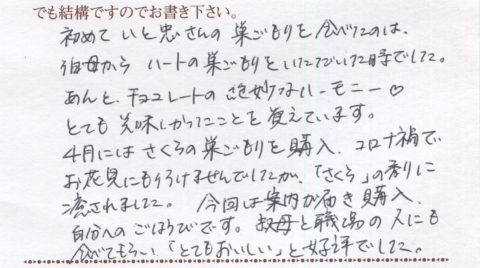 でも結構ですのでお書き下さい。
初めて いと忠さんの 巣ごもりを 食べたのは、
伯母から ハートの巣ごもりをいただいた時でした。
あんと、チョコレートの 絶妙なハーモニー♡
とても 美味しかったことを 覚えています。
4月には さくらの巣ごもりを購入、コロナ禍で
お花見にもうらけませんでしたが、「さくら」の香りに
癒されました。 今回は案内が届き購入、
自分への ごほうびです。 叔母と職場の人にも
食べてもらい、「とてもおいしい」と好評でした。